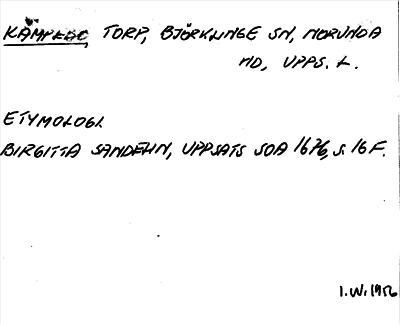 TORP, BJÖRKLINGE SN, NORUNDA
HD, UPPS. L.
ETYMOLOGI.
BIRGITTA SANDELIN, UPPSATS SOA 1676, S. 16 F.
I.W. 1956